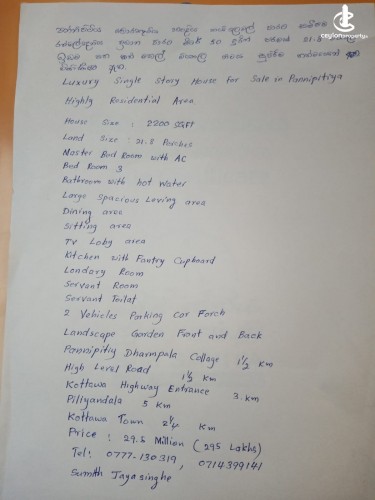 ceylonproperty.lk
Luxury Single Story House for Sale in Pannipitiya
Highly Residential Area
House Size : 2200 SQFT
Land Size : 21.8 Perches
Master Bed Room with AC
Bed Room 3
Bathroom with hot Water
Large Spacious Leving area
Dining area
Sitting area
TV Loby area
Kitchen with Pantry Cupboard
Londary Room
Servant Room
Servant Toilat
2 Vehicles Parking car Porch
Landscape Garden Front and Back
Pannipitiy Dharmpala Collage 1½ Km
High Level Road 1½ Km
Kottawa Highway Entrance 3. Km
Piliyandala 5 Km
Kottawa Town 2¼ Km
Price : 29.5 Million (295 Lakhs)
Tel: 0777-130319, 0714399141
Sumith Jayasinghe